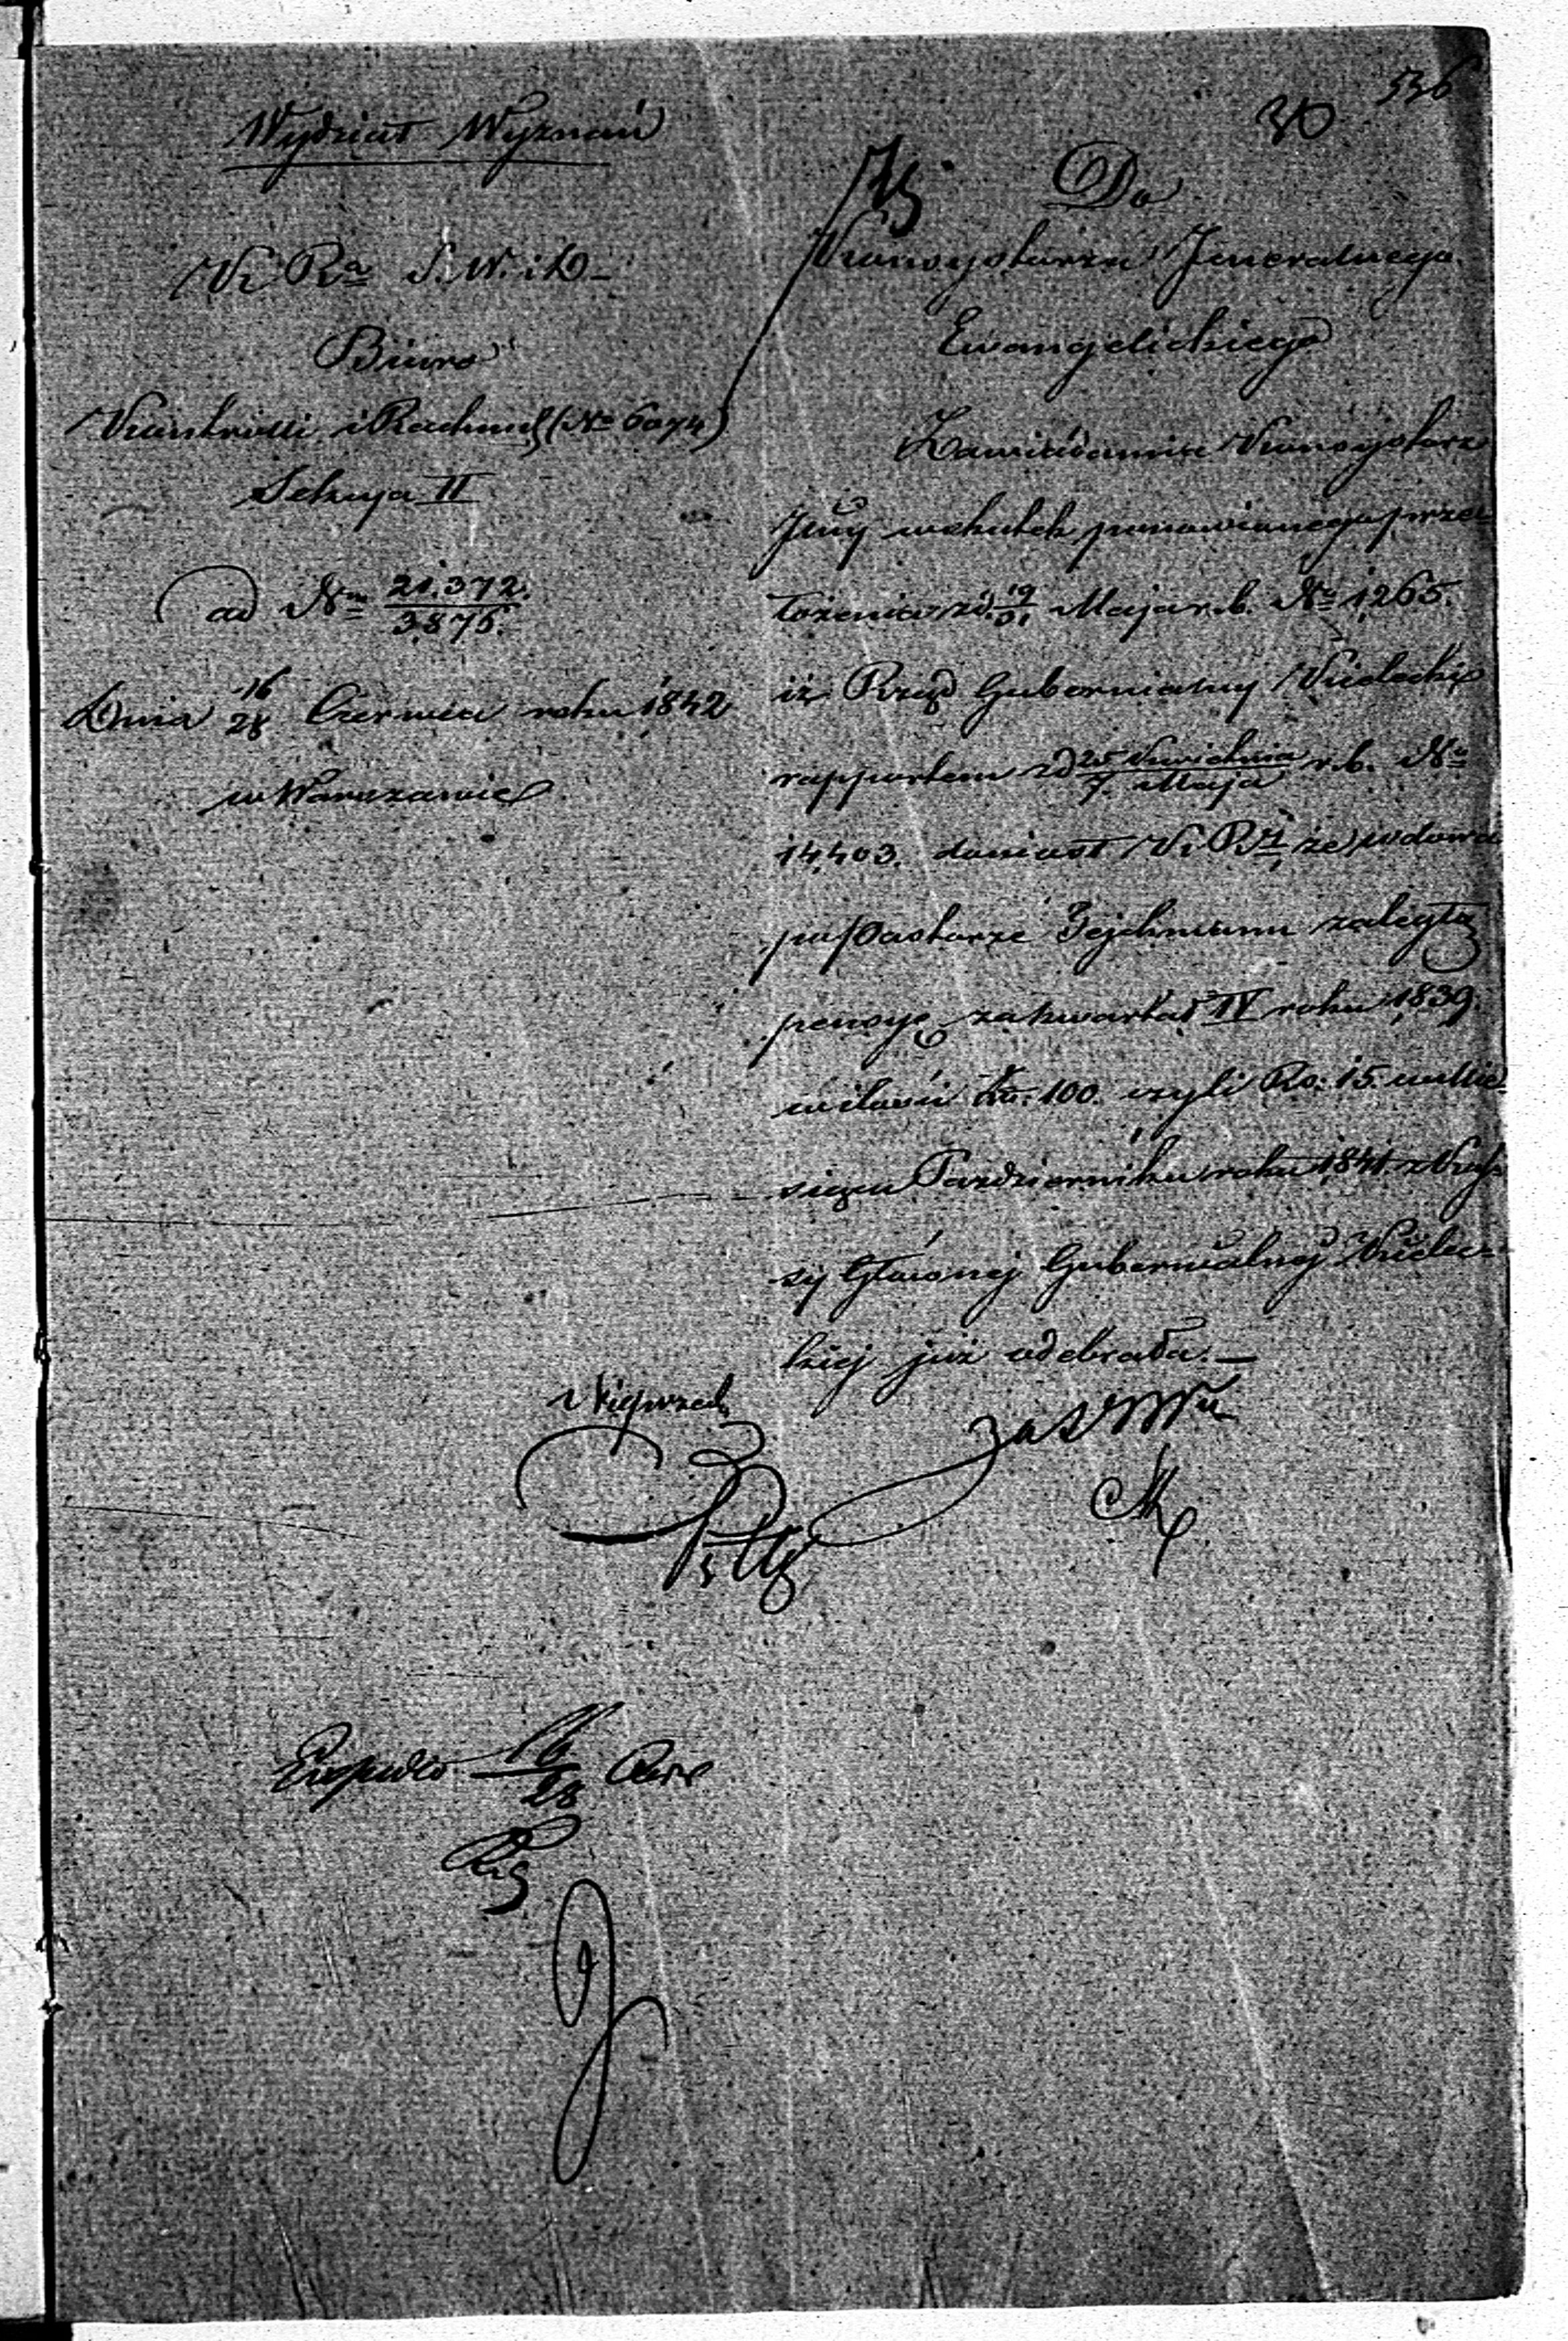 536
30
Wydział Wyznań
K. R.a S. W. i D.
Biuro
Kontrolli i Rachun: (No 6074)
Sekcya II
ad Nra 21.372. / 3.875.
Dnia 16/28 Czerwca roku 1842
w Warszawie
Do
Konsystorza Jeneralnego
Ewangelickiego
Zawiadamia Konsystorz
Jlny wskutek ponowionego przed
łożenia z d. 19/31 Maja r. b. No 1265.
iż Rząd Gubernialny Kielecki
rapportem z d 25 Kwietnia / 7. Maja r. b. No
14,403. doniósł K. R.i, że wdowa
po Pastorze Tejchmann zaległą
pensyę za kwartał IV roku 1839.
w ilości Zł. 100. czyli Rs. 15. w Mie-
siącu Październiku roku 1841 z Kas-
sy Głównej Gubernialnej Kielec-
kiej już odebrała. —
16/28